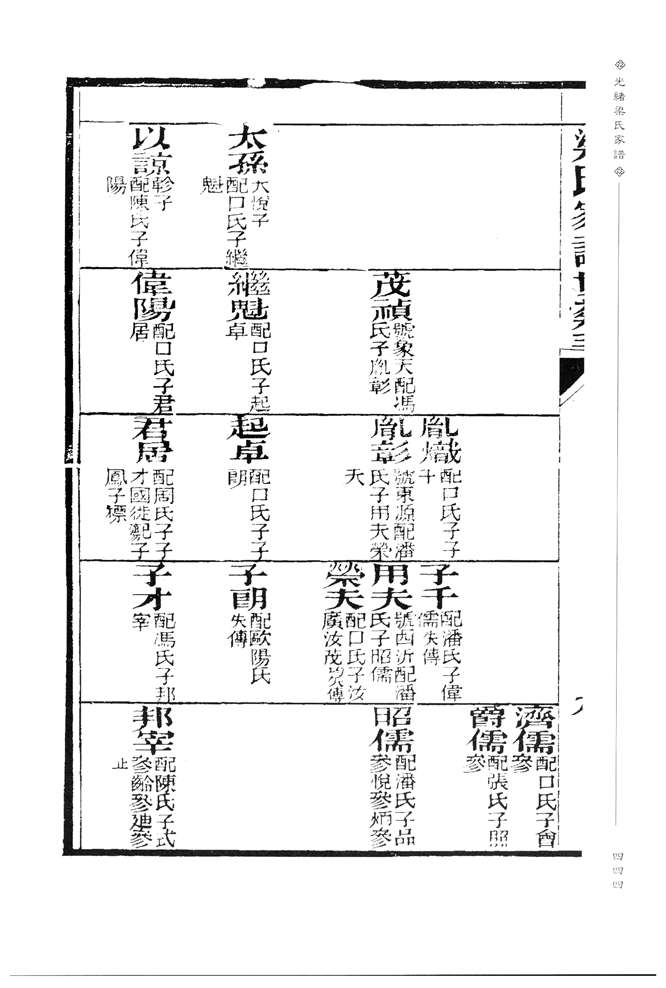 光緒梁氏家譜
四四四
梁氏家譜世系三
九
太孫
大悅子
配口氏子繼
魁
以諒
軫子
配陳氏子偉
陽
茂禎
號象天配馮
氏子胤彰
繼魁
配口氏子起
卓
偉陽
配口氏子君
居
胤熾
配口氏子子
千
胤彰
號東源配潘
氏子用夫榮
夫
起卓
配口氏子子
朗
君居
配周氏子子
才國徙鄒子
鳳子標
子千
配潘氏子偉
儒失傳
用夫
號西沂配潘
氏子昭儒
榮夫
配口氏子汝
廣汝茂失傳
子朗
配歐陽氏
失傳
子才
配馮氏子邦
宰
濟儒
配口氏子會
參
爵儒
配張氏子照
參
昭儒
配潘氏子品
參悅參炳參
邦宰
配陳氏子式
參齡參迪參
止